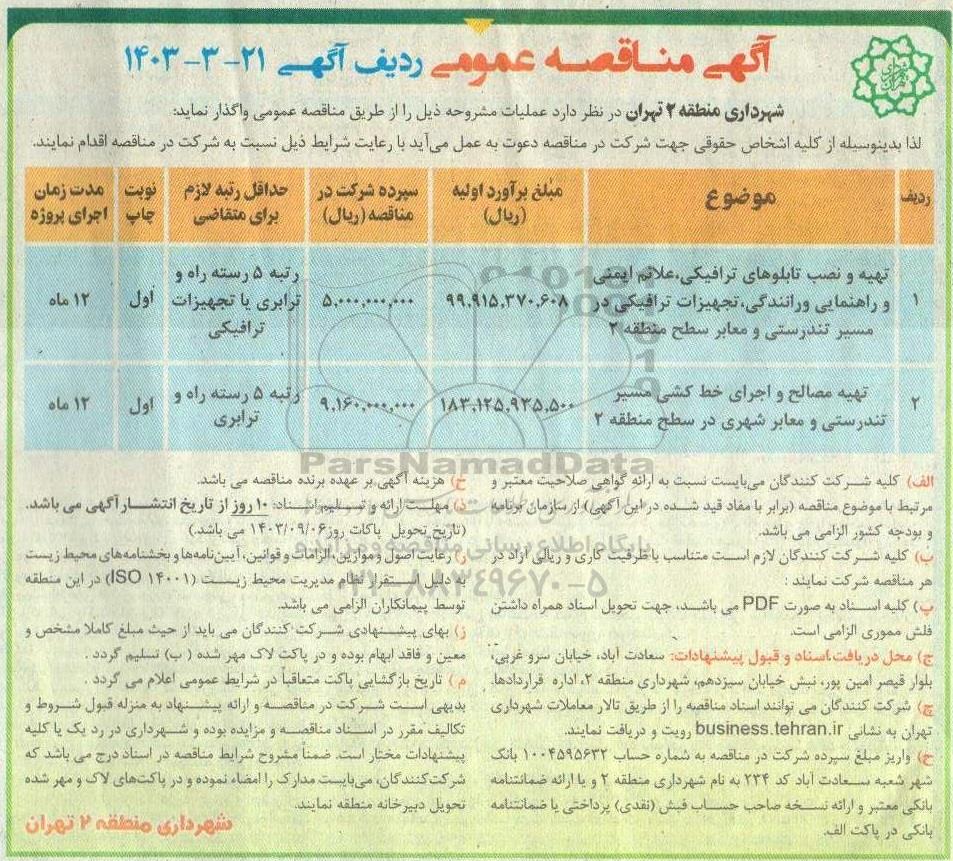 آگهی مناقصه عمومی ردیف آگهی ۲۱-۳-۱۴۰۳
شهرداری منطقه ۲ تهران در نظر دارد عملیات مشروحه ذیل را از طریق مناقصه عمومی واگذار نماید:
لذا بدینوسیله از کلیه اشخاص حقوقی جهت شرکت در مناقصه دعوت به عمل می‌آید با رعایت شرایط ذیل نسبت به شرکت در مناقصه اقدام نمایند.
ردیف
موضوع
مبلغ برآورد اولیه
(ریال)
سپرده شرکت در
مناقصه (ریال)
حداقل رتبه لازم
برای متقاضی
نوبت
چاپ
مدت زمان
اجرای پروژه
۱
تهیه و نصب تابلوهای ترافیکی،علائم ایمنی
و راهنمایی ورانندگی،تجهیزات ترافیکی در
مسیر تندرستی و معابر سطح منطقه ۲
۹۹،۹۱۵،۳۷۰،۶۰۸
۵،۰۰۰،۰۰۰،۰۰۰
رتبه ۵ رسته راه و
ترابری یا تجهیزات
ترافیکی
اول
۱۲ ماه
۲
تهیه مصالح و اجرای خط کشی مسیر
تندرستی و معابر شهری در سطح منطقه ۲
۱۸۳،۱۲۵،۹۳۵،۵۰۰
۹،۱۶۰،۰۰۰،۰۰۰
رتبه ۵ رسته راه و
ترابری
اول
۱۲ ماه
ParsNamadData
پایگاه اطلاع رسانی مناقصه و مزایده
۰۲۱-۸۸۳۴۹۶۷۰-۵
الف) کلیه شرکت کنندگان می‌بایست نسبت به ارائه گواهی صلاحیت معتبر و
مرتبط با موضوع مناقصه (برابر با مفاد قید شده در این آگهی) از سازمان برنامه
و بودجه کشور الزامی می باشد.
ب) کلیه شرکت کنندگان لازم است متناسب با ظرفیت کاری و ریالی آزاد در
هر مناقصه شرکت نمایند :
پ) کلیه اسناد به صورت PDF می باشد، جهت تحویل اسناد همراه داشتن
فلش مموری الزامی است.
ج) محل دریافت اسناد و قبول پیشنهادات: سعادت آباد، خیابان سرو غربی،
بلوار قیصر امین پور، نبش خیابان سیزدهم، شهرداری منطقه ۲، اداره قراردادها.
چ) شرکت کنندگان می توانند اسناد مناقصه را از طریق تالار معاملات شهرداری
تهران به نشانی business.tehran.ir رویت و دریافت نمایند.
ح) واریز مبلغ سپرده شرکت در مناقصه به شماره حساب ۱۰۰۴۵۹۵۶۳۲ بانک
شهر شعبه سعادت آباد کد ۲۳۴ به نام شهرداری منطقه ۲ و یا ارائه ضمانتنامه
بانکی معتبر و ارائه نسخه صاحب حساب فیش (نقدی) پرداختی یا ضمانتنامه
بانکی در پاکت الف.
خ) هزینه آگهی بر عهده برنده مناقصه می باشد.
د) مهلت ارائه و تسلیم اسناد: ۱۰ روز از تاریخ انتشار آگهی می باشد.
(تاریخ تحویل پاکات روز ۱۴۰۳/۰۹/۰۶ می باشد.)
ر) رعایت اصول و موازین، الزامات و قوانین، آیین‌نامه‌ها و بخشنامه‌های محیط زیست
به دلیل استقرار نظام مدیریت محیط زیست (ISO ۱۴۰۰۱) در این منطقه
توسط پیمانکاران الزامی می باشد.
ز) بهای پیشنهادی شرکت کنندگان می باید از حیث مبلغ کاملا مشخص و
معین و فاقد ابهام بوده و در پاکت لاک مهر شده ( ب) تسلیم گردد .
م ) تاریخ بازگشایی پاکت متعاقباً در شرایط عمومی اعلام می گردد .
بدیهی است شرکت در مناقصه و ارائه پیشنهاد به منزله قبول شروط و
تکالیف مقرر در اسناد مناقصه و مزایده بوده و شهرداری در رد یک یا کلیه
پیشنهادات مختار است. ضمناً مشروح شرایط مناقصه در اسناد درج می باشد که
شرکت‌کنندگان، می‌بایست مدارک را امضاء نموده و در پاکت‌های لاک و مهر شده
تحویل دبیرخانه منطقه نمایند.
شهرداری منطقه ۲ تهران